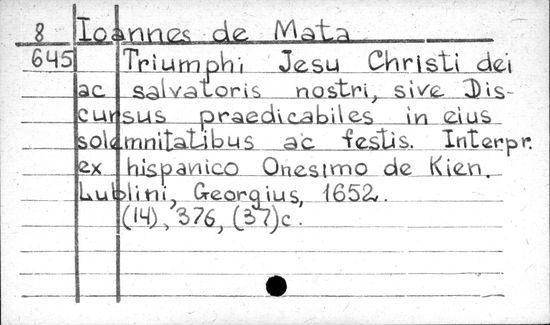 8 Ioannes de Mata
645 Triumphi Jesu Christi dei
ac salvatoris nostri, sive Dis-
cursus praedicabiles in eius
solemnitatibus ac festis. Interpr.
ex hispanico Onesimo de Kien.
Lublini, Georgius, 1652.
(14), 376, (37)c.